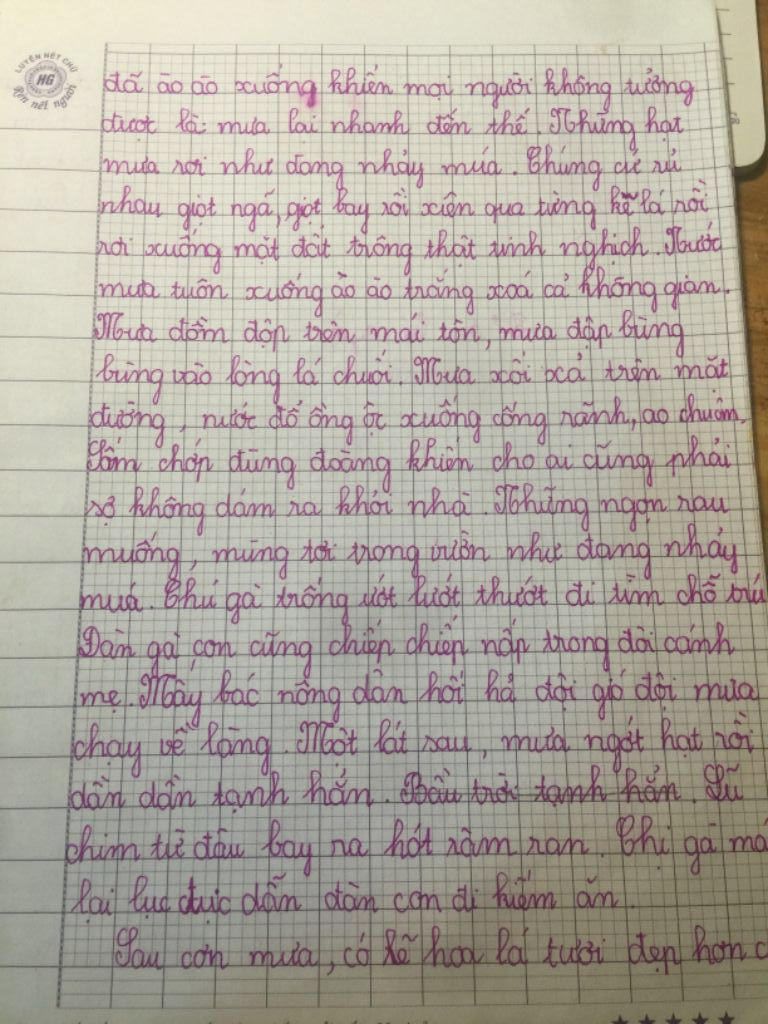 LUYỆN NÉT CHỮ
HG
Rèn nết người
đã ào ào xuống khiến mọi người không tưởng
được là mưa lại nhanh đến thế. Những hạt
mưa rơi như đang nhảy múa. Chúng cứ rủ
nhau giọt ngã, giọt bay rồi xiên qua từng kẽ lá rồi
rơi xuống mặt đất trông thật tinh nghịch. Nước
mưa tuôn xuống ào ào trắng xoá cả không gian.
Mưa đồm độp trên mái tôn, mưa đập bùng
bùng vào lòng lá chuối. Mưa xối xả trên mặt
đường, nước đổ ồng ộc xuống cống rãnh, ao chuôm.
Sấm chớp đùng đoàng khiến cho ai cũng phải
sợ không dám ra khỏi nhà. Những ngọn rau
muống, mùng tơi trong vườn như đang nhảy
múa. Chú gà trống ướt lướt thướt đi tìm chỗ trú
Đàn gà con cũng chiếp chiếp nấp trong đôi cánh
mẹ. Mấy bác nông dân hối hả đội gió đội mưa
chạy về làng. Một lát sau, mưa ngớt hạt rồi
dần dần tạnh hẳn. Bầu trời tạnh hẳn. Lũ
chim từ đâu bay ra hót râm ran. Chị gà má
lại lục đục dẫn đàn con đi kiếm ăn.
Sau cơn mưa, có lẽ hoa lá tươi đẹp hơn